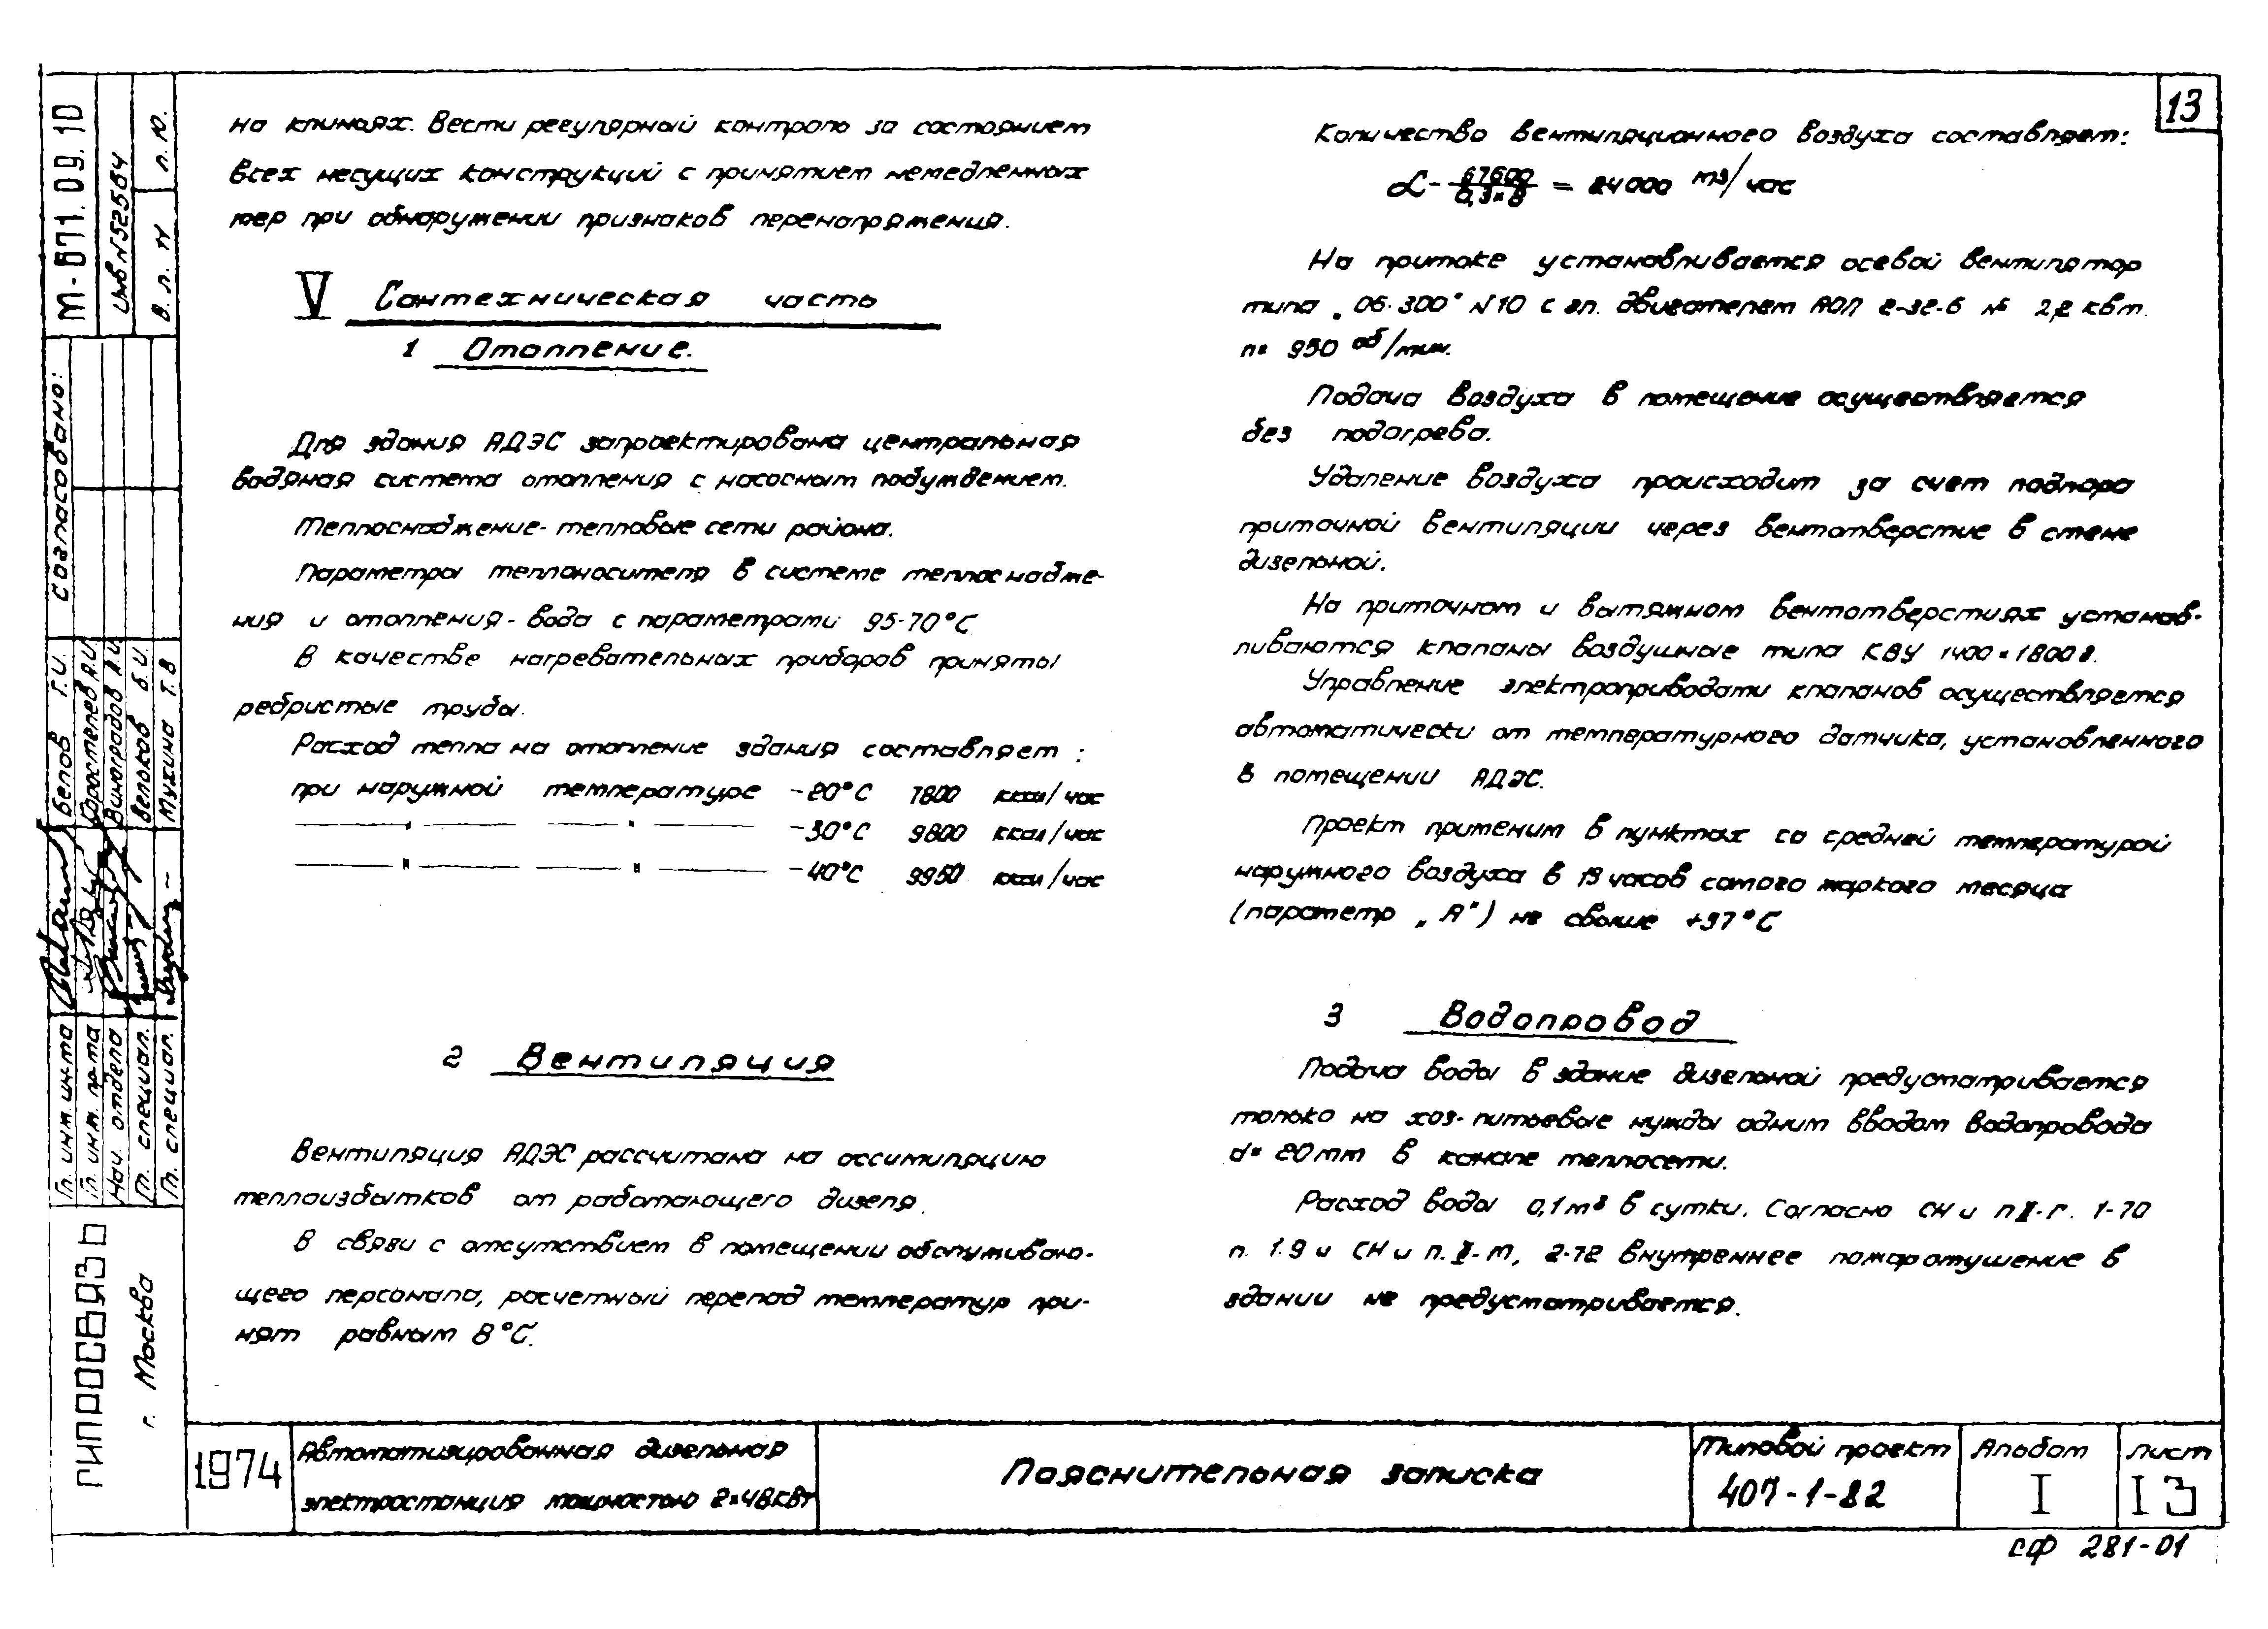 13
на клиньях. Вести регулярный контроль за состоянием
всех несущих конструкций с принятием немедленных
мер при обнаружении признаков перенапряжения.
V Сантехническая часть
1 Отопление.
Для здания АДЭС запроектирована центральная
водяная система отопления с насосным побуждением.
Теплоснабжение - тепловые сети района.
Параметры теплоносителя в системе теплоснабже-
ния и отопления - вода с параметрами 95-70°С
В качестве нагревательных приборов приняты
ребристые трубы.
Расход тепла на отопление здания составляет :
при наружной температуре -20°С 7800 ккал/час
— " — — " — -30°С 9800 ккал/час
— " — — " — -40°С 9950 ккал/час
2 Вентиляция
Вентиляция АДЭС рассчитана на ассимиляцию
теплоизбытков от работающего дизеля.
В связи с отсутствием в помещении обслуживаю-
щего персонала, расчетный перепад температур при-
нят равным 8°С.
Количество вентиляционного воздуха составляет:
L - 67600 / 0,3×8 = 24000 м3/час
На притоке устанавливается осевой вентилятор
типа „06-300" N10 с эл. двигателем АОЛ 2-32-6 N 2,2 квт.
n= 950 об/мин.
Подача воздуха в помещение осуществляется
без подогрева.
Удаление воздуха происходит за счет подпора
приточной вентиляции через вентотверстие в стене
дизельной.
На приточном и вытяжном вентотверстиях устанав-
ливаются клапаны воздушные типа КВУ 1400×1800 в.
Управление электроприводами клапанов осуществляется
автоматически от температурного датчика, установленного
в помещении АДЭС.
Проект применим в пунктах со средней температурой
наружного воздуха в 13 часов самого жаркого месяца
(параметр „А") не свыше +37°С
3 Водопровод
Подача воды в здание дизельной предусматривается
только на хоз-питьевые нужды одним вводом водопровода
d= 20мм в канале теплосети.
Расход воды 0,1м3 в сутки. Согласно СН и П II-Г. 1-70
п. 1.9 и СН и П. II-М, 2-72 внутреннее пожаротушение в
здании не предусматривается.
М-871.09.10
инв N525584
В. п. Н п. Ю.
Согласовано:
Гл. инж. ин-та Белов Г.И.
Гл. инж. пр-та Коростелев А.И
Нач. отдела Виноградов А.И
Гл. специал. Велоков Б.И.
Гл. специал. Мухина Т.В
ГИПРОСВЯЗЬ
г. Москва
1974
Автоматизированная дизельная
электростанция мощностью 2×48кВт
Пояснительная записка
Типовой проект
407-1-82
Альбом
I
Лист
13
СФ 281-01